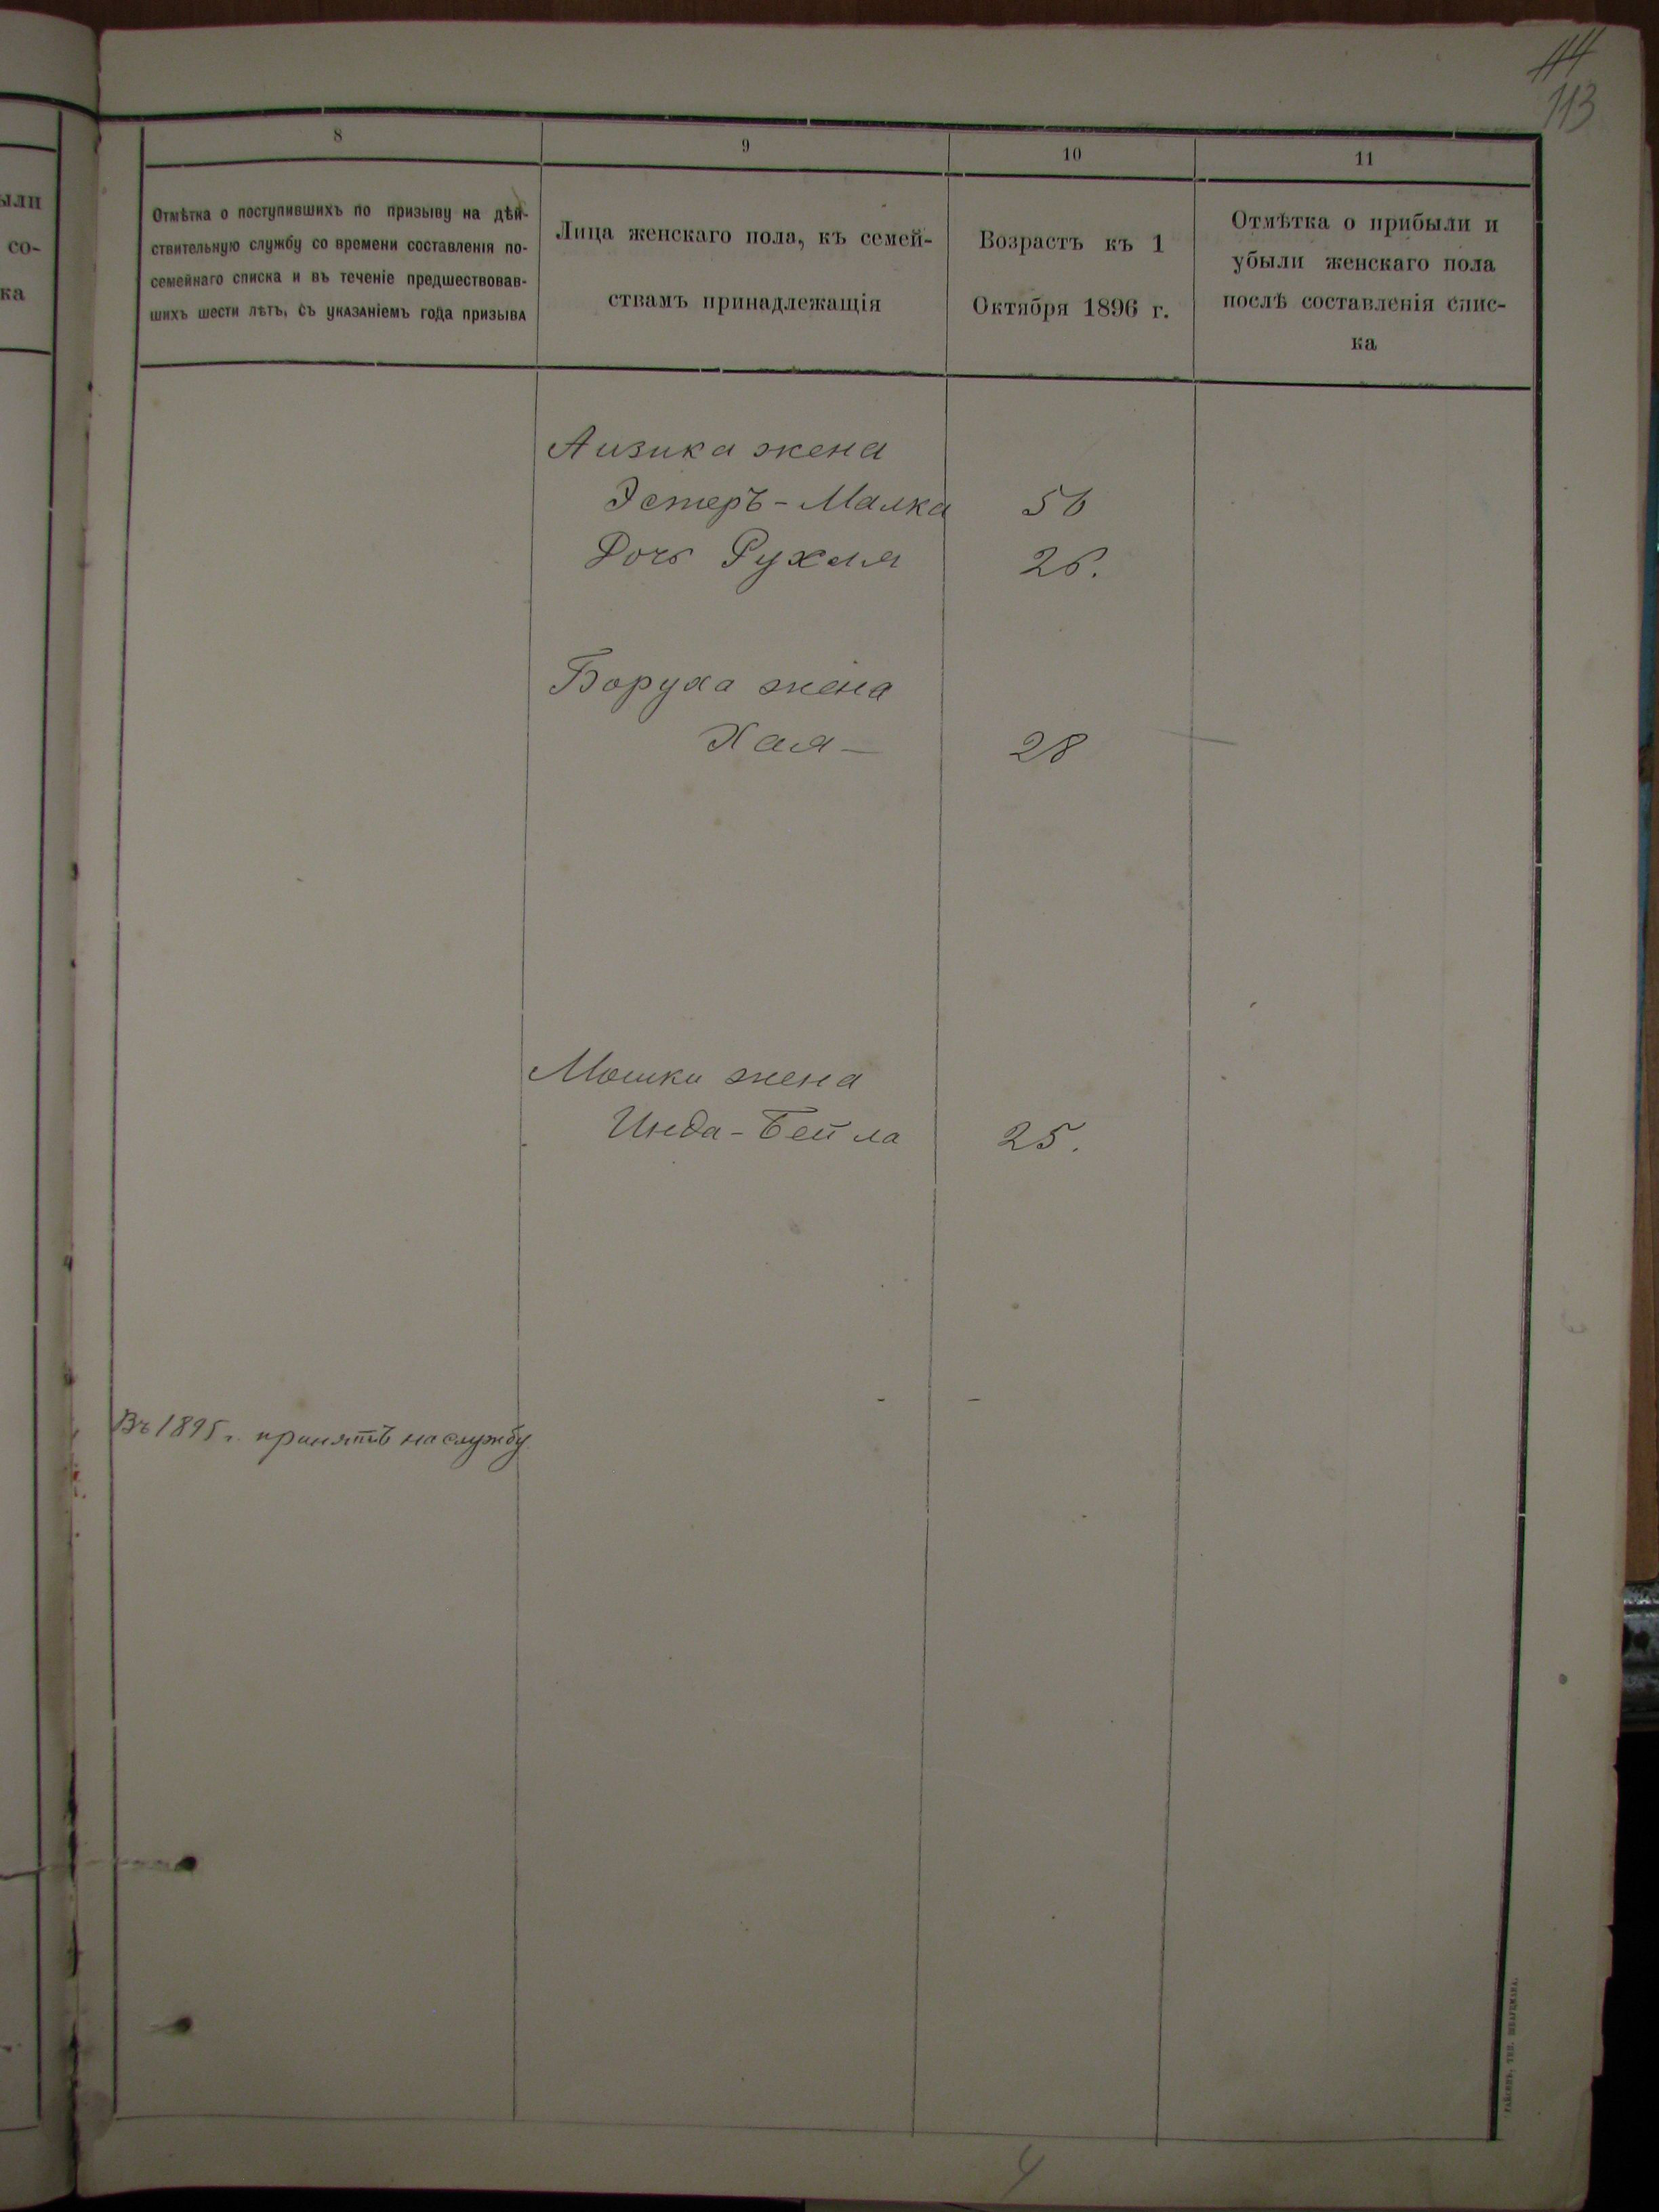 113
8
9
10
11
Отмѣтка о поступившихъ по призыву на дѣй-
ствительную службу со времени составленія по-
семейнаго списка и въ теченіе предшествовав-
шихъ шести лѣтъ, съ указаніемъ года призыва
Лица женскаго пола, къ семей-
ствамъ принадлежащія
Возрастъ къ 1
Октября 1896 г.
Отмѣтка о прибыли и
убыли женскаго пола
послѣ составленія спис-
ка
ыли
со-
ка
Аизика жена
Эстеръ-Малка 56
Дочь Рухля 26.
Боруха жена
Хая - 28
Мошки жена
Инда-Бейла 25.
Въ 1895 г. принятъ на службу